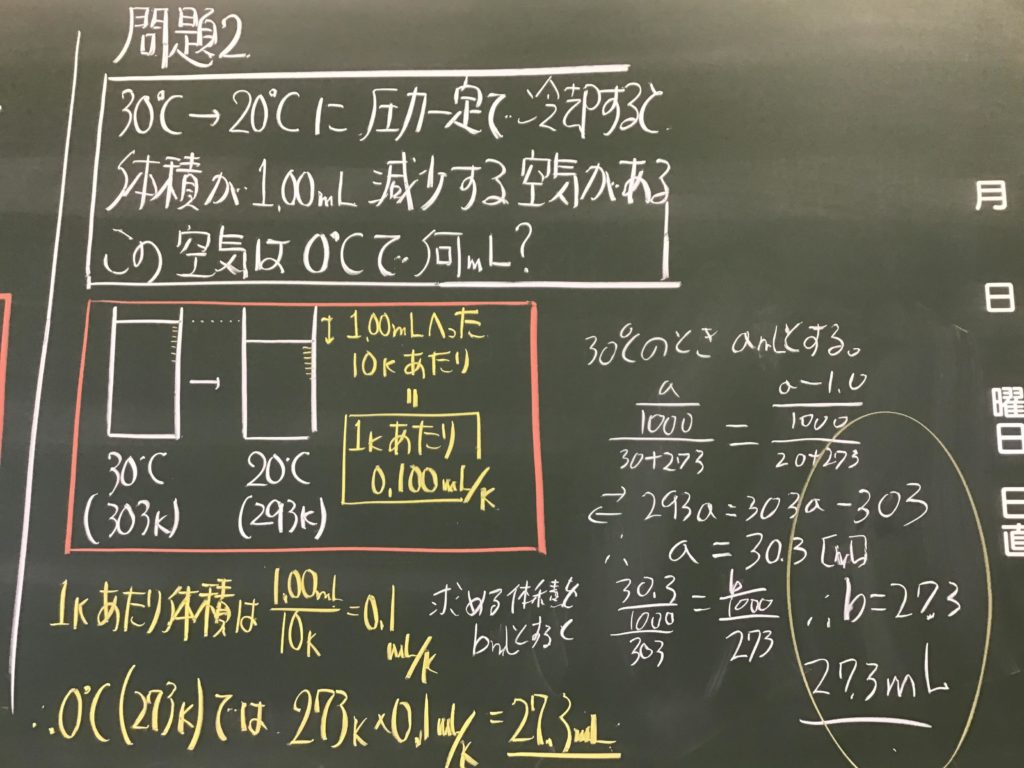 問題2
30℃→20℃に圧力一定で冷却すると
体積が1.00mL減少する空気がある
この空気は0℃で何mL?
1.00mLへった
10Kあたり
=
1Kあたり
0.100mL/K
30℃
(303K)
→
20℃
(293K)
30℃のときamLとする。
a/1000/30+273 = a-1.0/1000/20+273
⇄ 293a=303a-303
∴ a=30.3[ml]
求める体積を
bmLとすると
30.3/1000/303 = b/1000/273
∴b=27.3
27.3mL
1Kあたり体積は 1.00mL/10K=0.1mL/K
∴0℃(273K)では 273K×0.1mL/K=27.3mL
月
日
曜日
日直